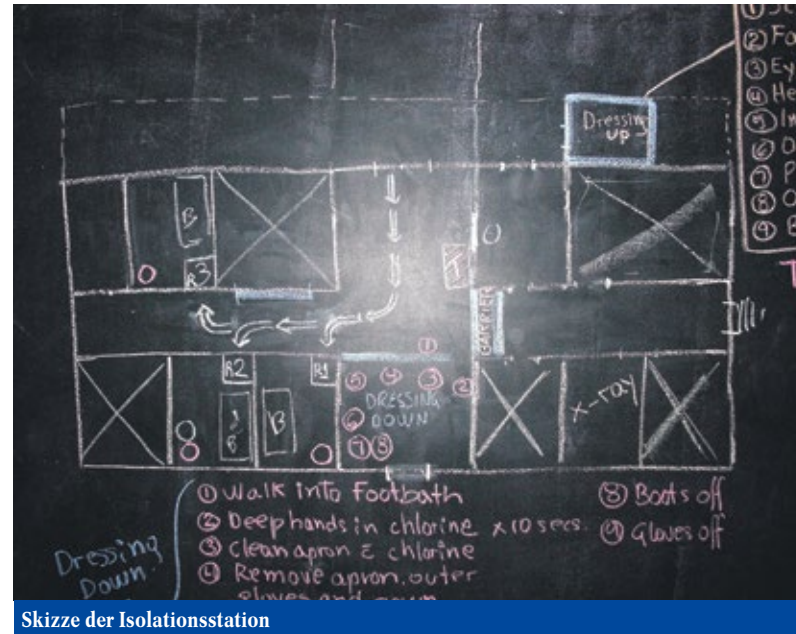 ② Fo
③ Ey
④ He
⑤ In
⑥ O
⑦ P
⑧ O
⑨ B
Dressing
UP
B
R3
BARRIER
R2
R1
B
B
①
⑤ ④ ③ ②
DRESSING
DOWN
⑥
⑦ ⑧
x-ray
Dressing
Down
① Walk into Footbath
② Deep hands in chlorine x10 secs.
③ Clean apron c chlorine
④ Remove apron, outer
gloves and gown
⑧ Boots off
⑨ Gloves off
Skizze der Isolationsstation